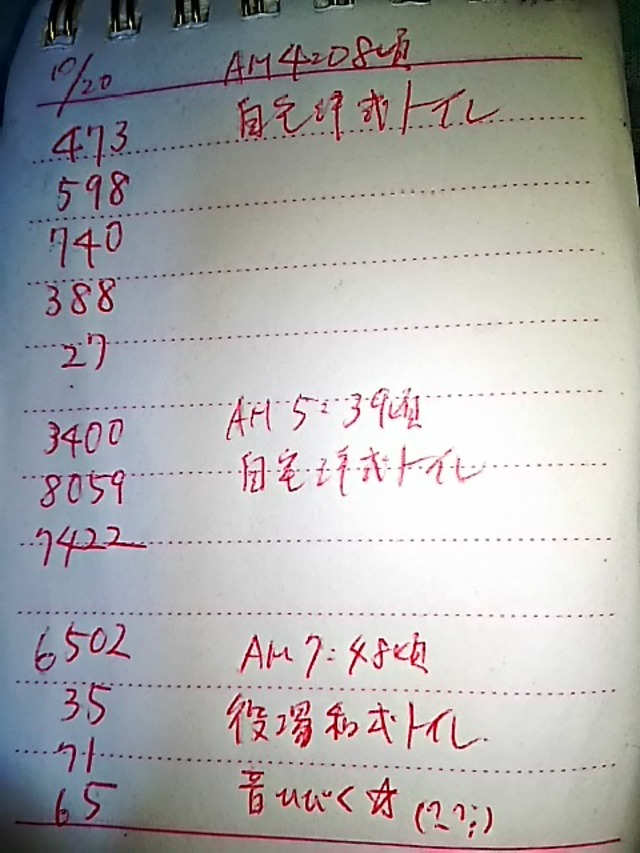 10/20 AM4:08頃
473 自宅洋式トイレ
598
740
388
27
3400 AM 5:39頃
8059 自宅洋式トイレ
7422
6502 AM7:48頃
35 役場和式トイレ
71
65 音ひびく☆(??;)